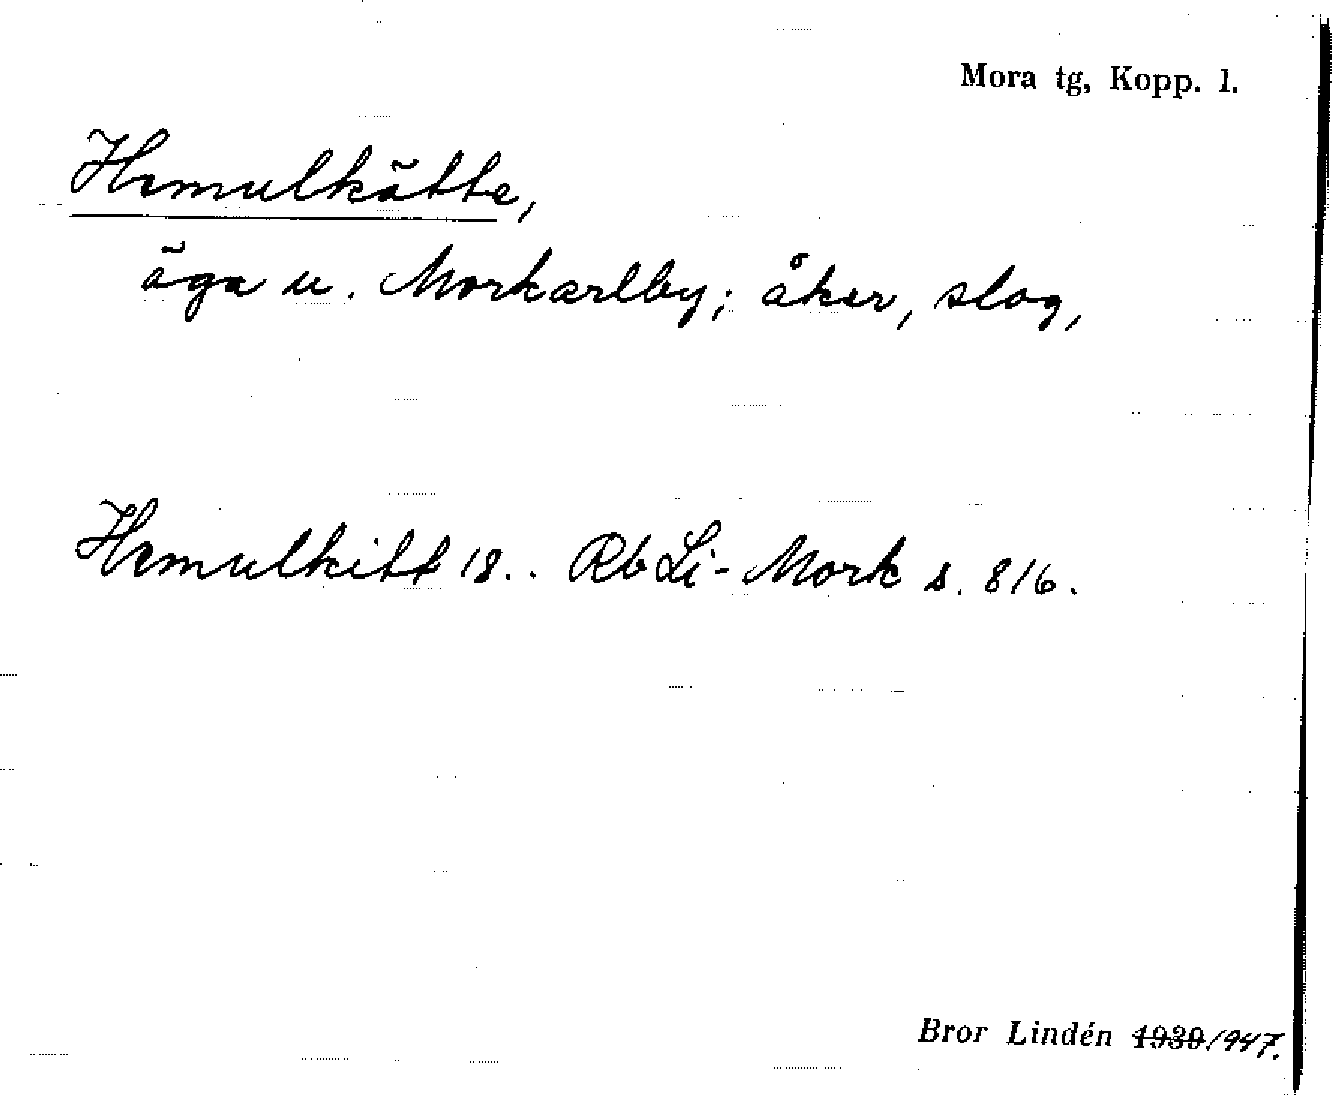 Mora tg, Kopp. l.
Hemulkätte,
äga u. Morkarlby; åker, slog,
Hemulkitt 18.. Rb Li-Mork s. 816.
Bror Lindén 1939/1947.